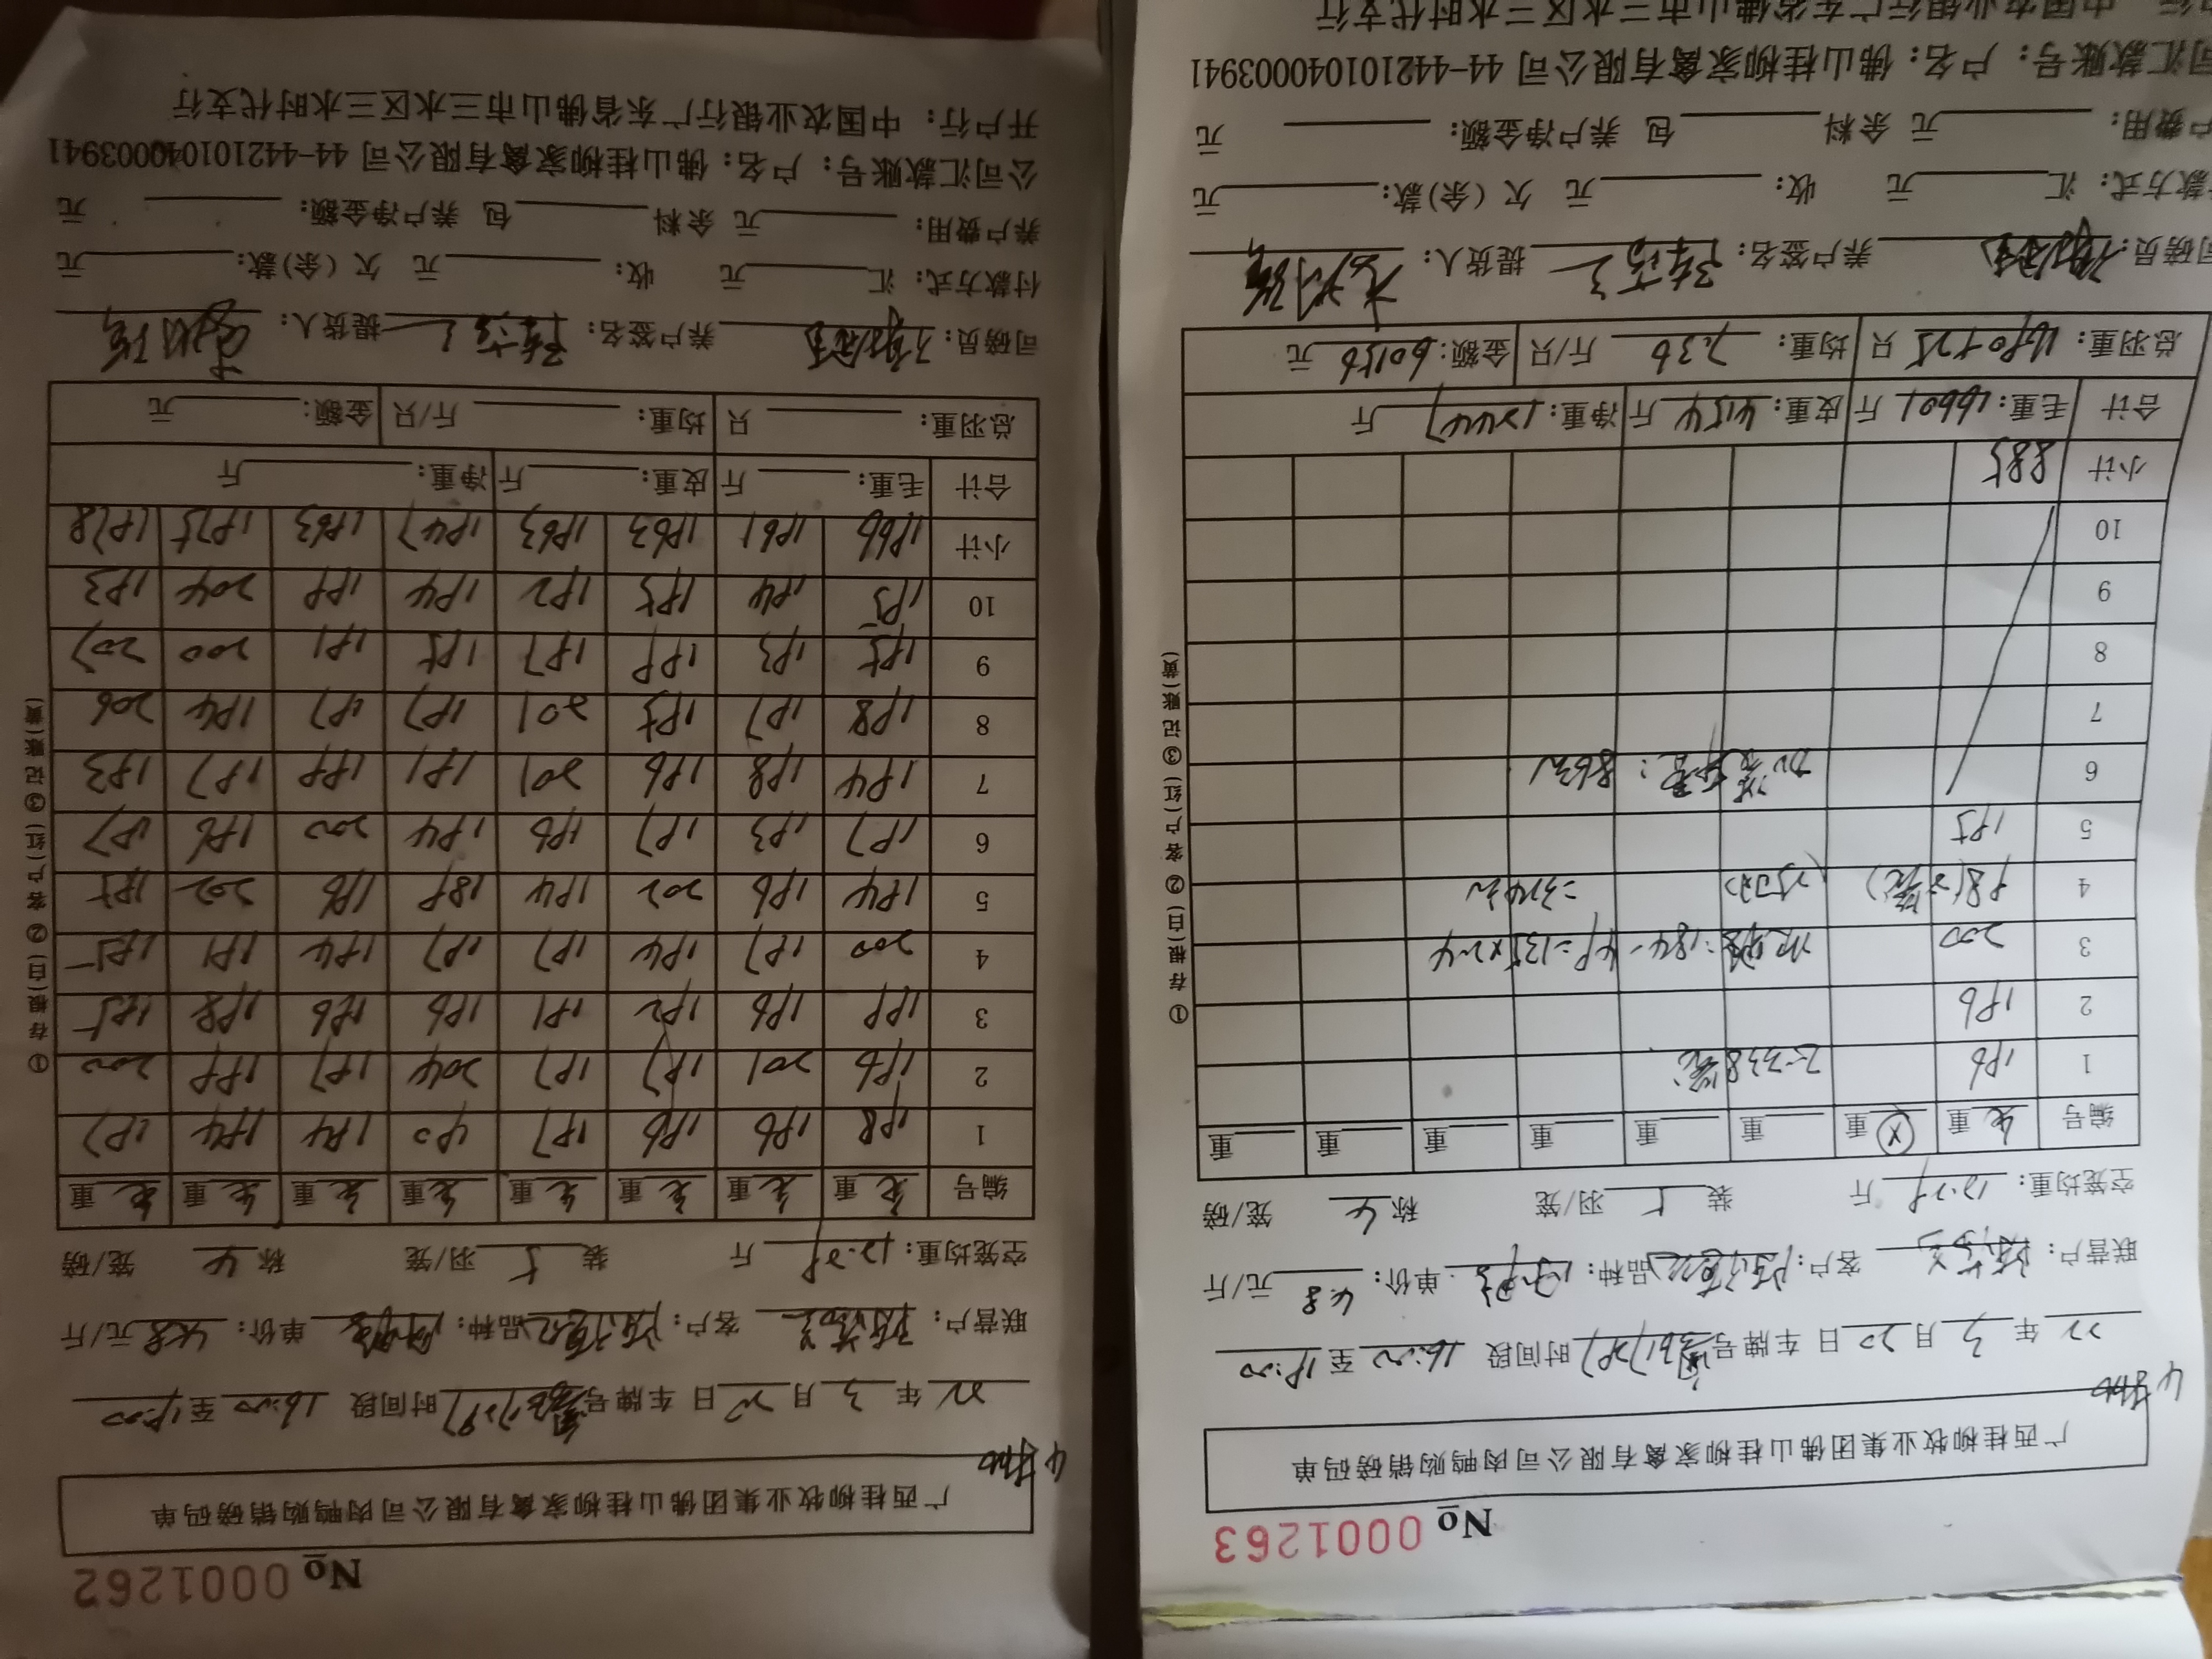 No 0001263
广西桂柳牧业集团佛山桂柳家禽有限公司肉鸭购销磅码单
22 年 3 月 20 日 车牌号 时间段 16:00 至 19:00
联营户: 客户: 品种: 单价: 4.8 元/斤
空笼均重: 12.29 斤 装 5 羽/笼 称 4 笼/磅
编号 毛重 重 重 重 重 重 重 重
1 196 2-338笼
2 196
3 200 184-49=135×24
4 98(2笼) =3240元
5 195
6 863元
7
8
9
10
小计 885
合计 毛重: 16601 斤 皮重: 4154 斤 净重: 12447 斤
总羽重: 1690+25 只 均重: 7.36 斤/只 金额: 60156 元
司磅员: 养户签名: 提货人:
付款方式: 汇 元 收: 元 欠(余)款: 元
养户费用: 元 余料 包 养户净金额: 元
公司汇款账号: 户名: 佛山桂柳家禽有限公司 44-442101040003941
开户行: 中国农业银行广东省佛山市三水区三水时代支行
①存根(白) ②客户(红) ③记账(黄)
No 0001262
广西桂柳牧业集团佛山桂柳家禽有限公司肉鸭购销磅码单
22 年 3 月 20 日 车牌号 时间段 16:00 至 19:00
联营户: 客户: 品种: 单价: 4.8 元/斤
空笼均重: 12.29 斤 装 5 羽/笼 称 4 笼/磅
编号 毛重 毛重 毛重 毛重 毛重 毛重 毛重 毛重
1 198 196 196 197 190 194 194 197
2 196 201 197 197 204 197 199 200
3 199 196 192 191 196 196 198 195
4 200 197 194 197 197 194 191 195
5 194 196 202 194 189 196 202 195
6 197 193 197 196 194 200 196 197
7 194 198 196 201 191 199 197 193
8 198 197 195 201 197 197 194 206
9 195 193 199 197 195 191 200 207
10 195 194 195 192 194 199 204 193
小计 1966 1961 1963 1963 1947 1963 1975 1978
合计 毛重: 斤 皮重: 斤 净重: 斤
总羽重: 只 均重: 斤/只 金额: 元
司磅员: 养户签名: 提货人:
付款方式: 汇 元 收: 元 欠(余)款: 元
养户费用: 元 余料 包 养户净金额: 元
公司汇款账号: 户名: 佛山桂柳家禽有限公司 44-442101040003941
开户行: 中国农业银行广东省佛山市三水区三水时代支行
①存根(白) ②客户(红) ③记账(黄)